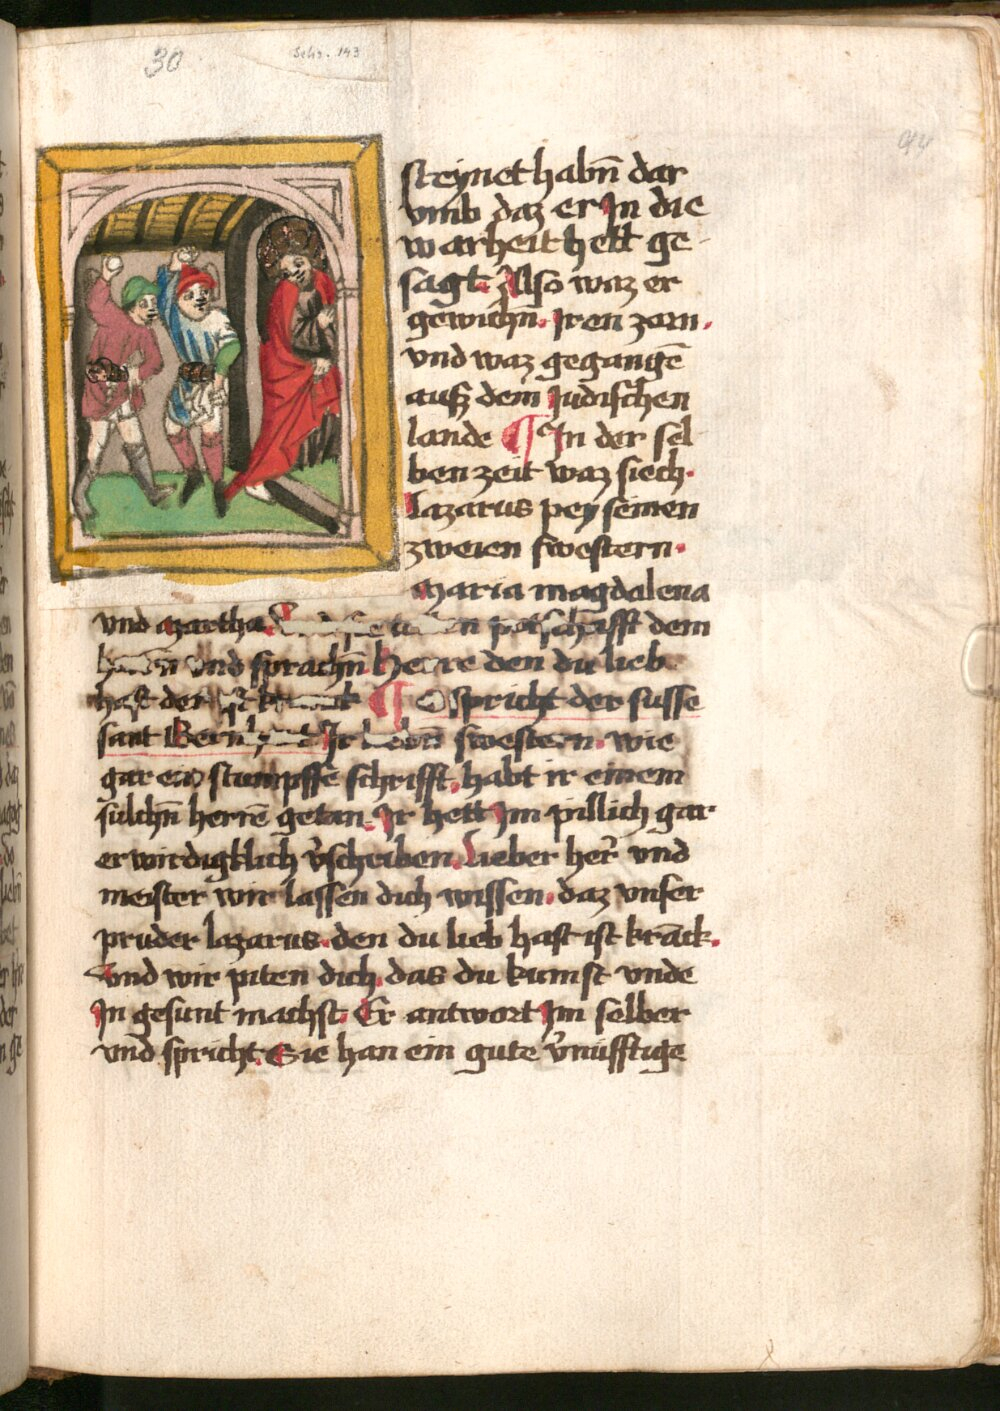 30
Schr. 143
94
steynet habn̄ dar
vmb daz er In die
warheit hett ge
sagt. Also waz er
gewichn̄. Iren zorn.
vnd waz gegangē
auſz dem Iudiſchen
lande ¶ In der ſel
ben zeit waz ſiech.
lazarus pey ſeinen
zweien ſweſtern.
Maria magdalena
vnd Martha. potſchafft dem
vnd ſprachn̄. Herre den du lieb
haſt der iſt ¶ O ſpricht der ſuſſe
ſant Ir ſweſtern. wie
gar ein ſtumpffe ſchrifft. habt ir einem
ſulchn̄ herrē getan. Ir hett Im pillich gar
erwirdigklich v̄ſchriben. Lieber her̄ vnd
meiſter wir laſſen dich wiſſen. daz vnſer
pruder lazarus. den du lieb haſt iſt krāck.
Vnd wir piten dich. das du kumſt vnde
In geſunt machſt. Er antwort Im ſelber
vnd ſpricht. Sie han ein gute v̄nūfftige